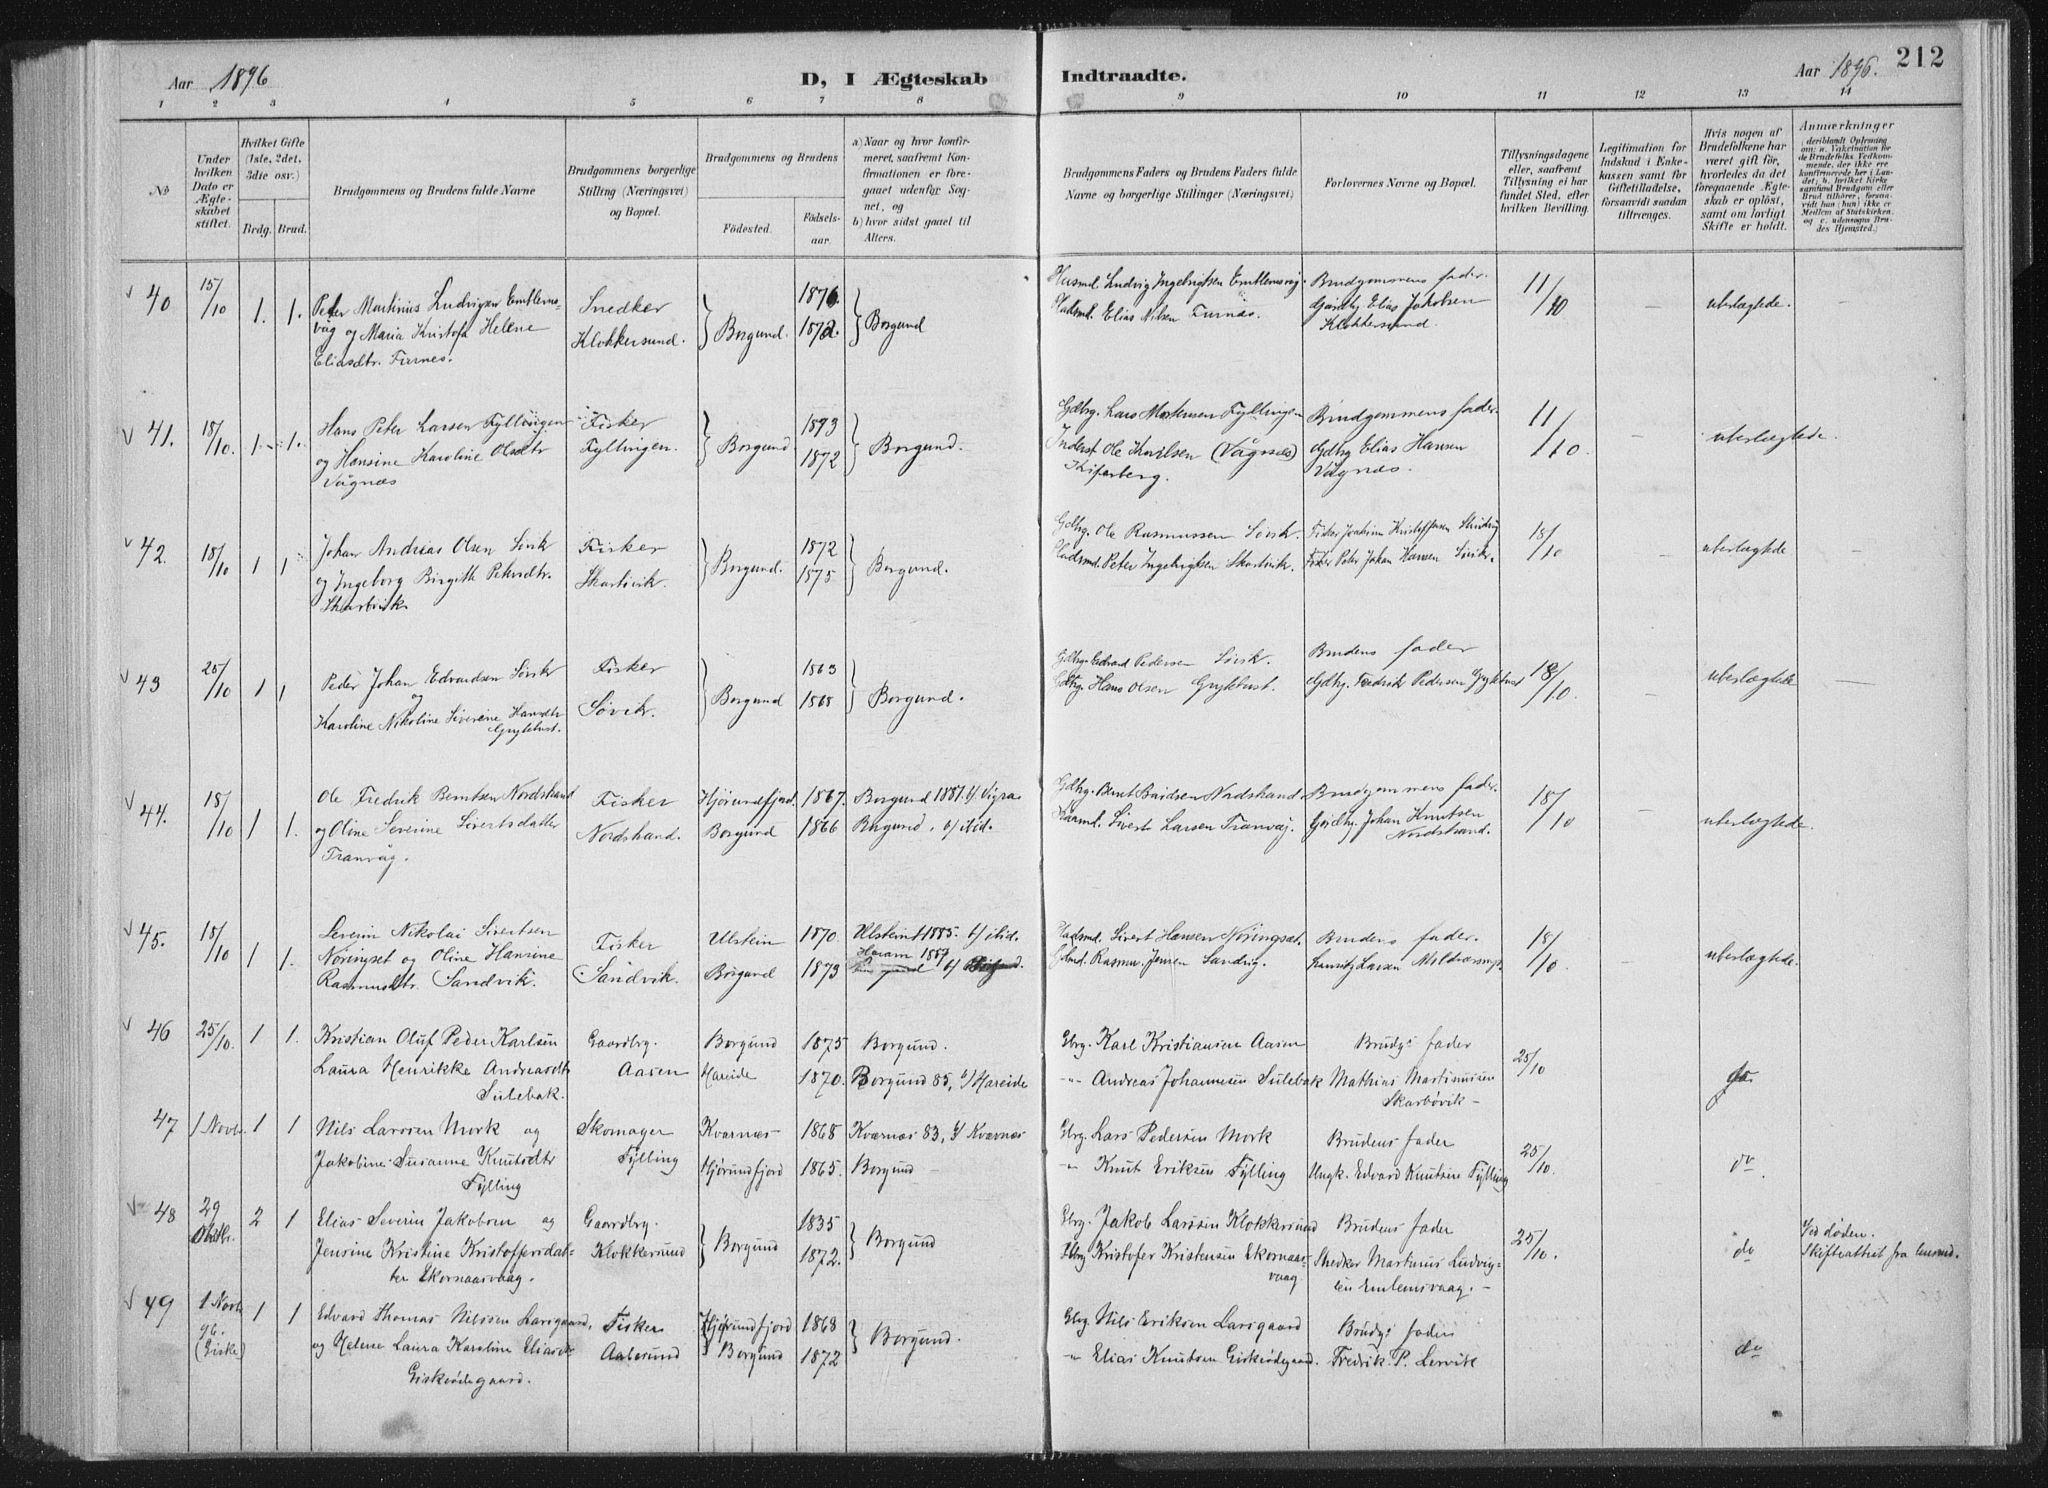 Aar 1896
D, I Ægteskab
Indtraadte.
Aar 1896.
212
1 2 3 4 5 6 7 8 9 10 11 12 13 14
No
Under hvilken Dato er Ægteskabet stiftet.
Hvilket Gifte (1ste, 2det, 3dte osv.)
Brdg. Brud.
Brudgommens og Brudens fulde Navne
Brudgommens borgerlige Stilling (Næringsvei) og Bopæl.
Brudgommens og Brudens
Födested.
Födselsaar.
a) Naar og hvor konfirmeret, saafremt Konfirmationen er foregaaet udenfor Sognet, og
b) hvor sidst gaaet til Alters.
Brudgommens Faders og Brudens Faders fulde Navne og borgerlige Stillinger (Næringsvei)
Forlovernes Navne og Bopæl.
Tillysningsdagene eller, saafremt Tillysning ei har fundet Sted, efter hvilken Bevilling.
Legitimation for Indskud i Enkekassen samt for Giftetilladelse, forsaavidt saadan tiltrænges.
Hvis nogen af Brudefolkene har været gift før, hvorledes da det foregaaende Ægteskab er oplöst, samt om lovligt Skifte er holdt.
Anmærkninger
40 15/10 1. 1. Peter Martinius Ludvigsen Emblemsvåg og Maria Kristofa Helene Eliasdtr. Furnes.
Snedker Klokkersund.
Borgund.
1876.
1872.
Borgund
Husmd. Ludvig Ingebrigtsen Emblemsvåg
Pladsmd. Elias Nilsen Furnæs.
Brudgommens fader.
Gårdbg. Elias Jakobsen Klokkersund.
11/10
uberlægtede.
41. 18/10. 1. 1. Hans Peter Larsen Fyllingen og Hansine Karoline Olsdtr Vågnæs
Fisker Fyllingen.
Borgund
1873
1872
Borgund.
Gdbrg. Lars Mortensen Fyllingen
Inderst Ole Karlsen (Vågnæs)
Brudgommens fader.
Gdbrg Elias Hansen Vågnæs.
11/10.
uberlægtede.
42. 18/10 1 1 Johan Andrias Olsen Søvik og Ingeborg Birgith Petersdtr. Skarbøvik
Fisker Skarbøvik.
Borgund.
1872
1875
Borgund.
Gdbrg. Ole Rasmussen Søvik.
Pladsmd. Peter Ingebrigtsen Skarbøvik.
Fisker Peter Johan Hansen Søvik.
18/10
uberlægtede
43 25/10 1 1 Peder Johan Edvardsen Søvik og Karoline Nikoline Severine Hansdtr Grytehust.
Fisker Søvik.
Borgund
1863
1868
Borgund.
Gdbrg. Edvard Pedersen Søvik.
Gdbrg. Hans Olsen Grytehust.
Brudens fader
Gdbrg. Fredrik Pedersen Grytehust
18/10.
uberlægtede
44. 18/10 1 1. Ole Fredrik Berntsen Nordstrand og Oline Severine Sivertsdatter Tranvåg.
Fisker Nordstrand.
Hjørundfjord.
Borgund
1867.
1866
Borgund 1881. b/ Vigra
Borgund. b/ ibid.
Gdbrg. Bernt Baardsen Nordstrand.
Sivert Larsen Tranvåg.
Brudgommens fader.
Gårdbg. Johan Knutsen Nordstrand.
18/10
uberlægtede.
45. 18/10 1 1. Severin Nikolai Sivertsen Nøringset og Oline Hansine Rasmusdtr. Sandvik.
Fisker Sandvik.
Ulstein
Borgund
1870.
1873
Ulstein 1885. b/ ibid.
Haram 1887
b/ Borgund.
Pladsmd. Sivert Hansen Nøringset.
Rasmus Jensen Sandvig.
Brudens fader.
18/10
uberlægtede.
46 25/10. 1 1. Kristian Oluf Peder Karlsen
Laura Henrikke Andreasdtr Sulebak.
Gaardbrg. Aasen
Borgund
Hareide
1875
1870.
Borgund.
Borgund 85, b/ Hareide
Gbrg. Karl Kristiansen Aasen
-"- Andreas Johannesen Sulebak
Brudgs fader
Mathias Martinusen Skarbøvik -
25/10
do
47 1 Novbr. 1 1 Nils Larssen Mork og
Jakobine Susanne Knutsdtr Fylling
Skomager Fylling
Kvarnæs
Hjørundfjord
1868
1865.
Kvarnæs 83, b/ Kvarnæs
Borgund -
Gbrg. Lars Pedersen Mork
-"- Knut Eriksen Fylling
Brudens fader
Ungk. Edvard Knutsen Fylling
25/10.
do
48 29 Oktbr. 2 1 Elias Severin Jakobsen og
Jensine Kristine Kristoffersdatter Ekornaasvaag.
Gaardbrg. Klokkersund
Borgund
1835
1872.
Borgund
Gbrg. Jakob Larssen Klokkersund
Gbrg Kristofer Kristensen Ekornaasvaag.
Brudens fader
Snedker Martinus Ludvigsen Emlemsvaag. -
25/10.
do
Ved døden.
Skifteattest fra lensmd.
49 1 Novbr 96. (Giske) 1 1 Edvard Thomas Nilssen Larsgaard,
og Helene Laura Karoline Eliasdtr Giskeødegaard.
Fisker Aalesund
Hjørundfjord
Borgund
1868
1872
Borgund.
Gbrg Nils Eriksen Larsgaard
-"- Elias Knutsen Giskeødegaard.
Brudgs fader
Fredrik P. Lervik
do